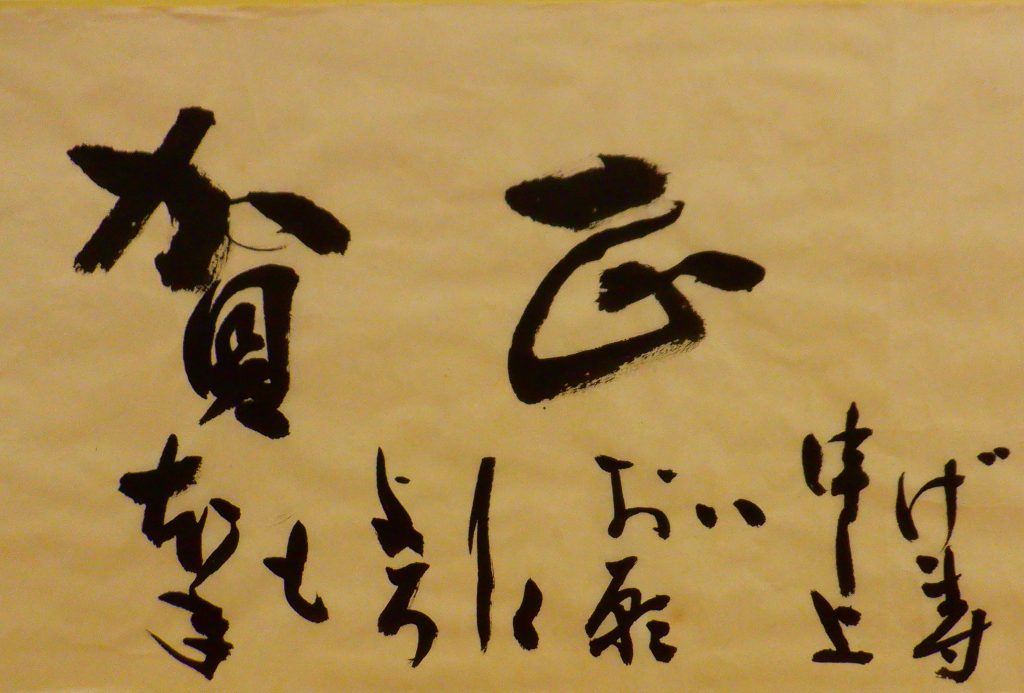 賀正
本年もよろしくお願い申上げ寿